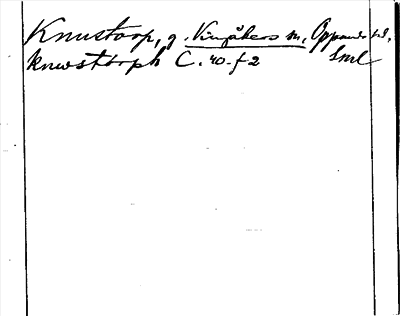 Knustorp, g. Vingåkers sn, Oppunda hd,
knwsttorph C. 40-f 2 Sml